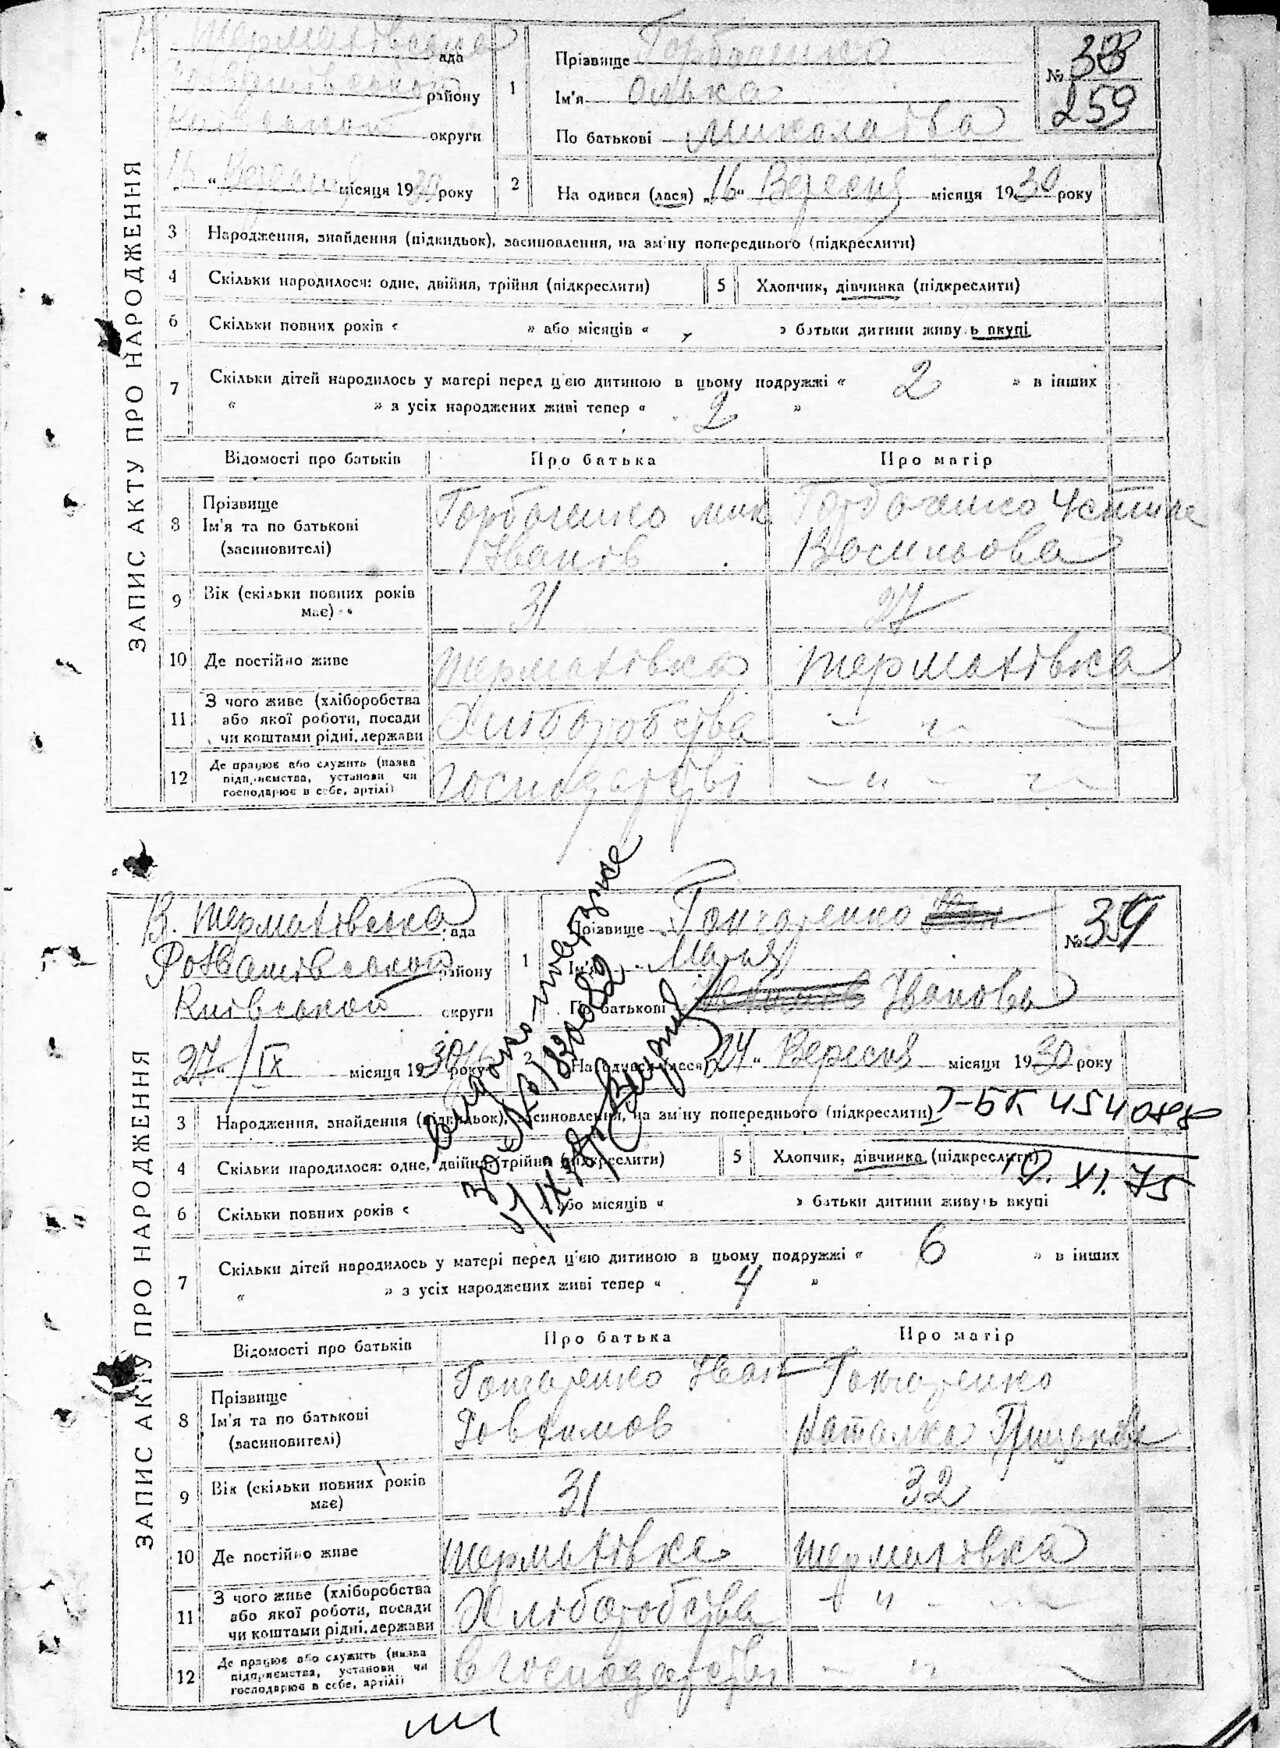 ЗАПИС АКТУ ПРО НАРОДЖЕННЯ
Термахівська рада
району
Київської округи
16 місяця 1930 року
1
Прізвище Горбаченко
Ім'я Олька
По батькові Миколаїва
№ 33
259
2
На одився (лася) „16“ Вересня місяця 1930 року
3 Народження, знайдення (підкидьок), засиновлення, на зміну попереднього (підкреслити)
4 Скільки народилося: одне, двійня, трійня (підкреслити)
5 Хлопчик, дівчинка (підкреслити)
6 Скільки повних років « » або місяців « » батьки дитини живуть вкупі
7 Скільки дітей народилось у матері перед цією дитиною в цьому подружжі « 2 » в інших
« » з усіх народжених живі тепер « 2 »
Відомості про батьків Про батька Про матір
8 Прізвище
Ім'я та по батькові
(засиновителі)
Горбаченко Мик
Іванов
Горбаченко
Васильова
9 Вік (скільки повних років має) 31 27
10 Де постійно живе Термахівка Термахівка
11 З чого живе (хліборобства
або якої роботи, посади
чи коштами рідні, держави
Хліборобства – „ –
12 Де працює або служить (назва
підприємства, установи чи
господарює в себе, артілі)
господарстві – „ –
ЗАПИС АКТУ ПРО НАРОДЖЕННЯ
В. Термахівська рада
Розважівського району
Київської округи
27/IX місяця 1930 року
1
Прізвище Гончаренко
Ім'я Марія
По батькові Іванова
№ 34
2
Народився (лася) „24“ Вересня місяця 1930 року
3 Народження, знайдення (підкидьок), засиновлення, на зміну попереднього (підкреслити)
I-БК 454088
19.XI.75
4 Скільки народилося: одне, двійня, трійня (підкреслити)
5 Хлопчик, дівчинка (підкреслити)
6 Скільки повних років « » або місяців « » батьки дитини живуть вкупі
7 Скільки дітей народилось у матері перед цією дитиною в цьому подружжі « 6 » в інших
« » з усіх народжених живі тепер « 4 »
Відомості про батьків Про батька Про матір
8 Прізвище
Ім'я та по батькові
(засиновителі)
Гончаренко Іван
Гончаренко
Наталка
9 Вік (скільки повних років має) 31 32
10 Де постійно живе Термахівка Термахівка
11 З чого живе (хліборобства
або якої роботи, посади
чи коштами рідні, держави
Хліборобства – „ –
12 Де працює або служить (назва
підприємства, установи чи
господарює в себе, артілі)
в господарстві – „ –